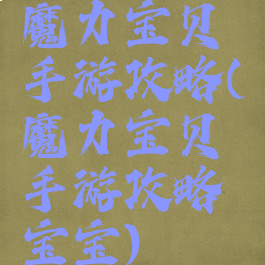 魔力宝贝
手游攻略(
魔力宝贝
手游攻略
宝宝)